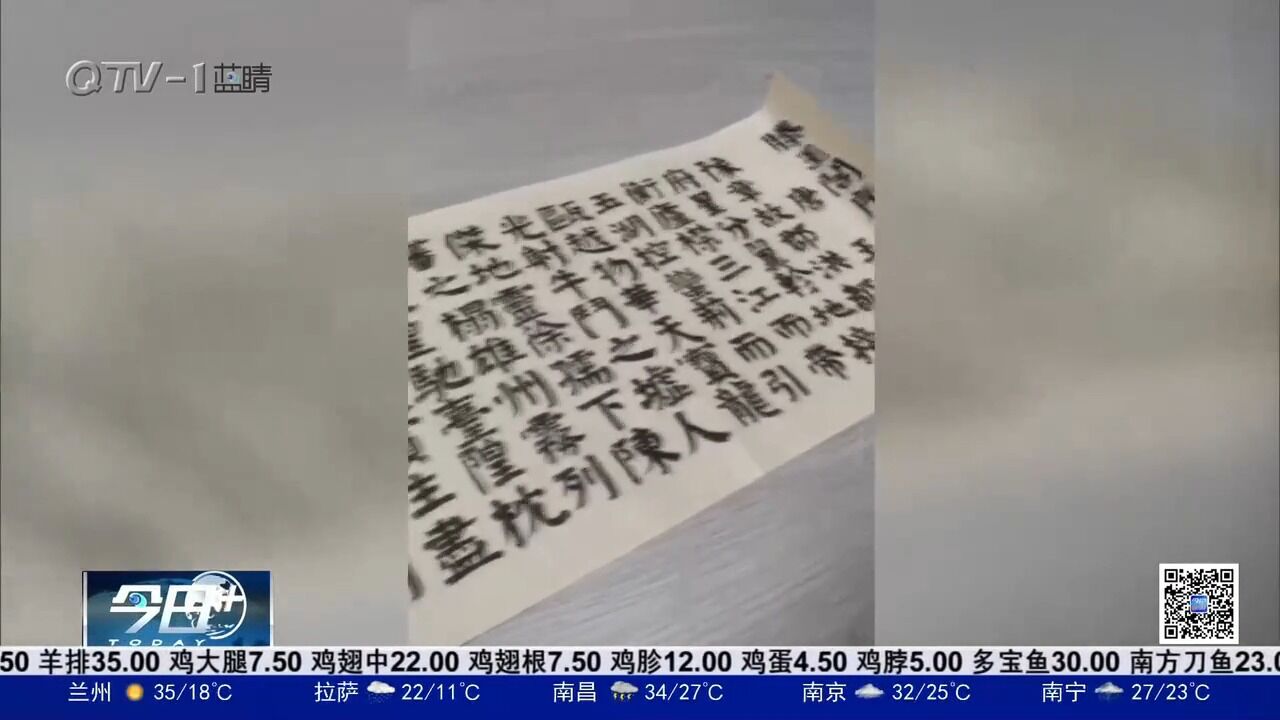 QTV-1 蓝睛
滕王閣
唐 王
章故郡洪都
府星分翼軫地接
衡廬襟三江而帶
五湖控蠻荊而引
甌越物華天寶龍
光射牛鬥之墟人
傑地靈徐孺下陳
蕃之榻雄州霧列
星馳臺隍枕
主盡
今日
TODAY
50 羊排35.00 鸡大腿7.50 鸡翅中22.00 鸡翅根7.50 鸡胗12.00 鸡蛋4.50 鸡脖5.00 多宝鱼30.00 南方刀鱼23.0
兰州 35/18℃ 拉萨 22/11℃ 南昌 34/27℃ 南京 32/25℃ 南宁 27/23℃